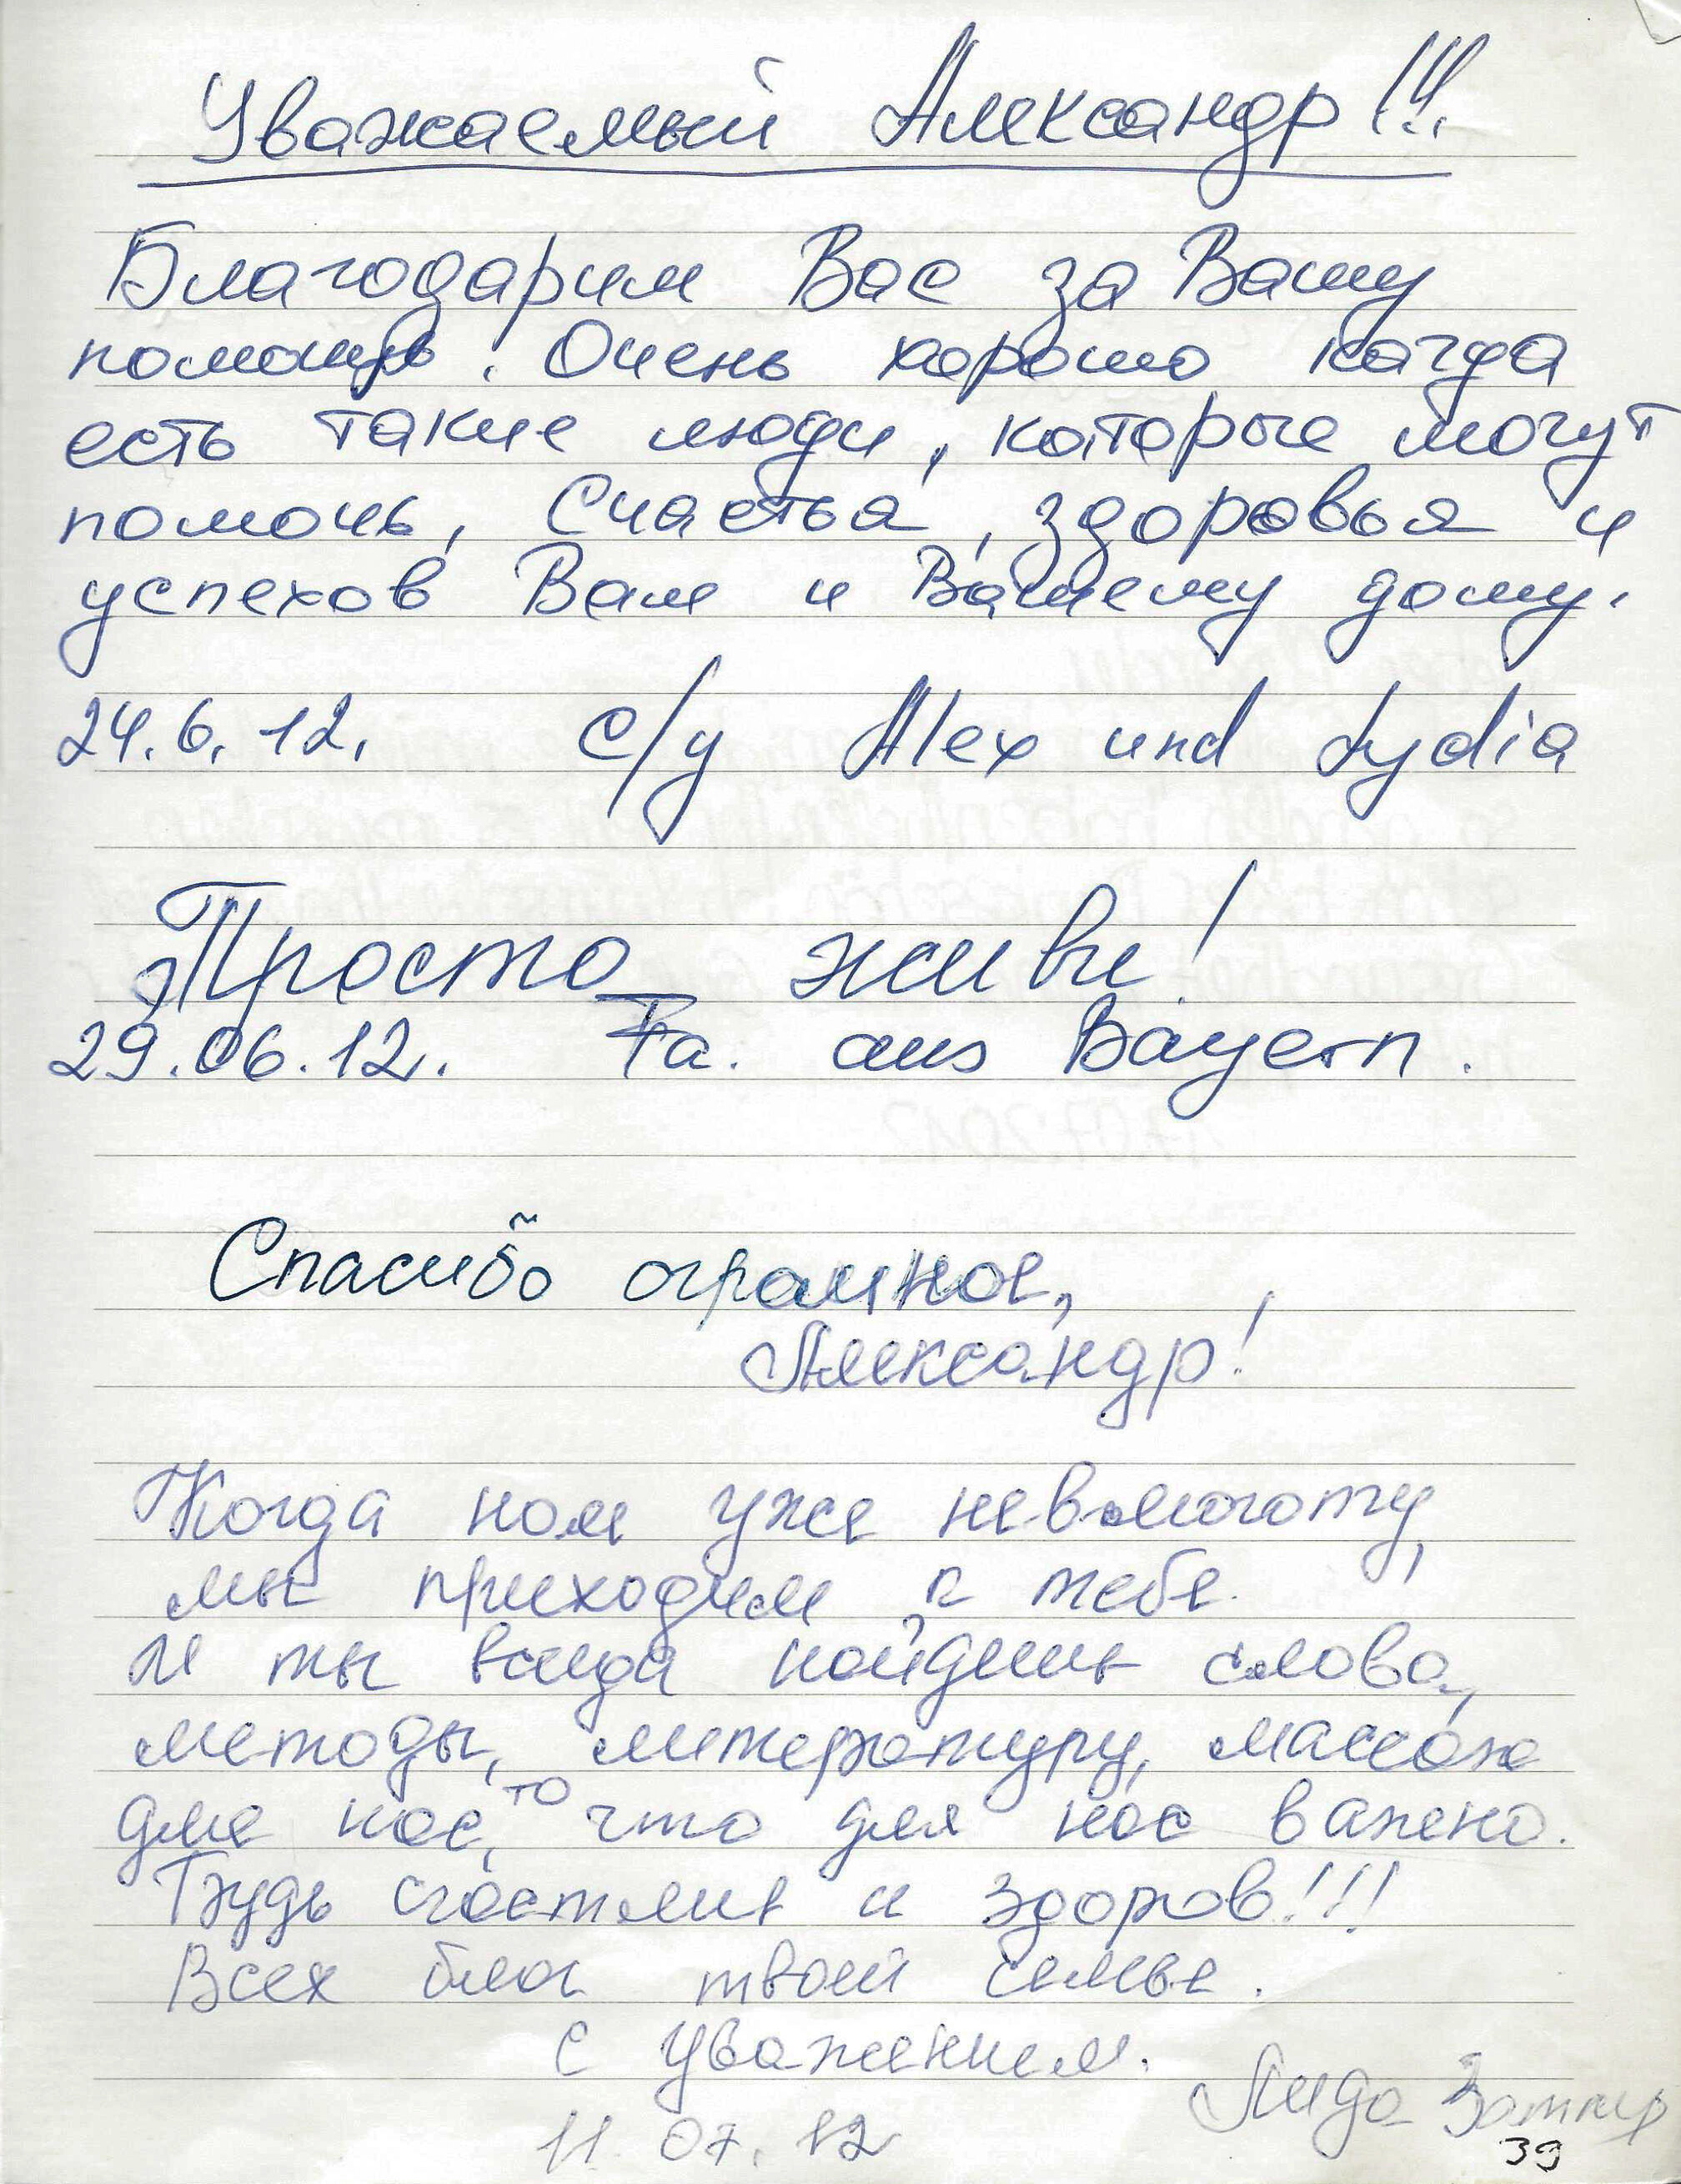 Уважаемый Александр!!!
Благодарим Вас за Вашу
помощь! Очень хорошо когда
есть такие люди, которые могут
помочь, Счастья, здоровья и
успехов Вам и Вашему дому.
24.6.12. с/у Alex und Lydia
Просто живи!
29.06.12. Fa. aus Bayern.
Спасибо огромное,
Александр!
Когда нам уже невмоготу,
мы приходим к тебе.
И ты всегда найдешь слова,
методы, литературу, массаж
для нас, то что для нас важно.
Будь счастлив и здоров!!!
Всех благ твоей семье.
С уважением.
Лида
11.07.12
39